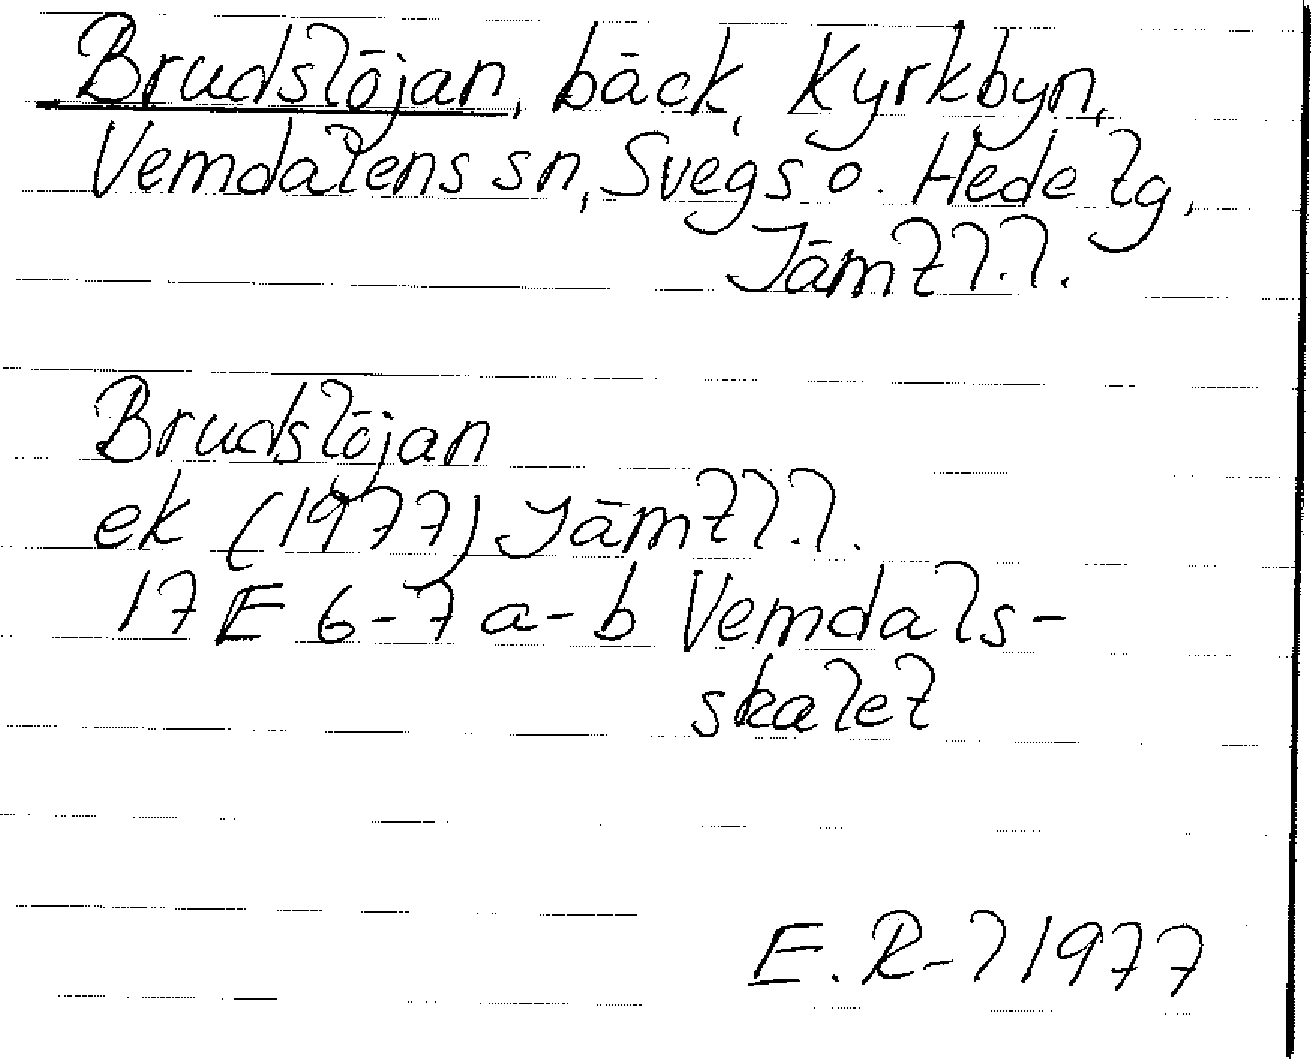 Brudslöjan, bäck, Kyrkbyn,
Vemdalens sn, Svegs o. Hede lg,
Jämtl.l.
Brudslöjan
ek (1977) Jämtl.l.
17 E 6-7 a-b Vemdals-
skalet
E. R-l 1977